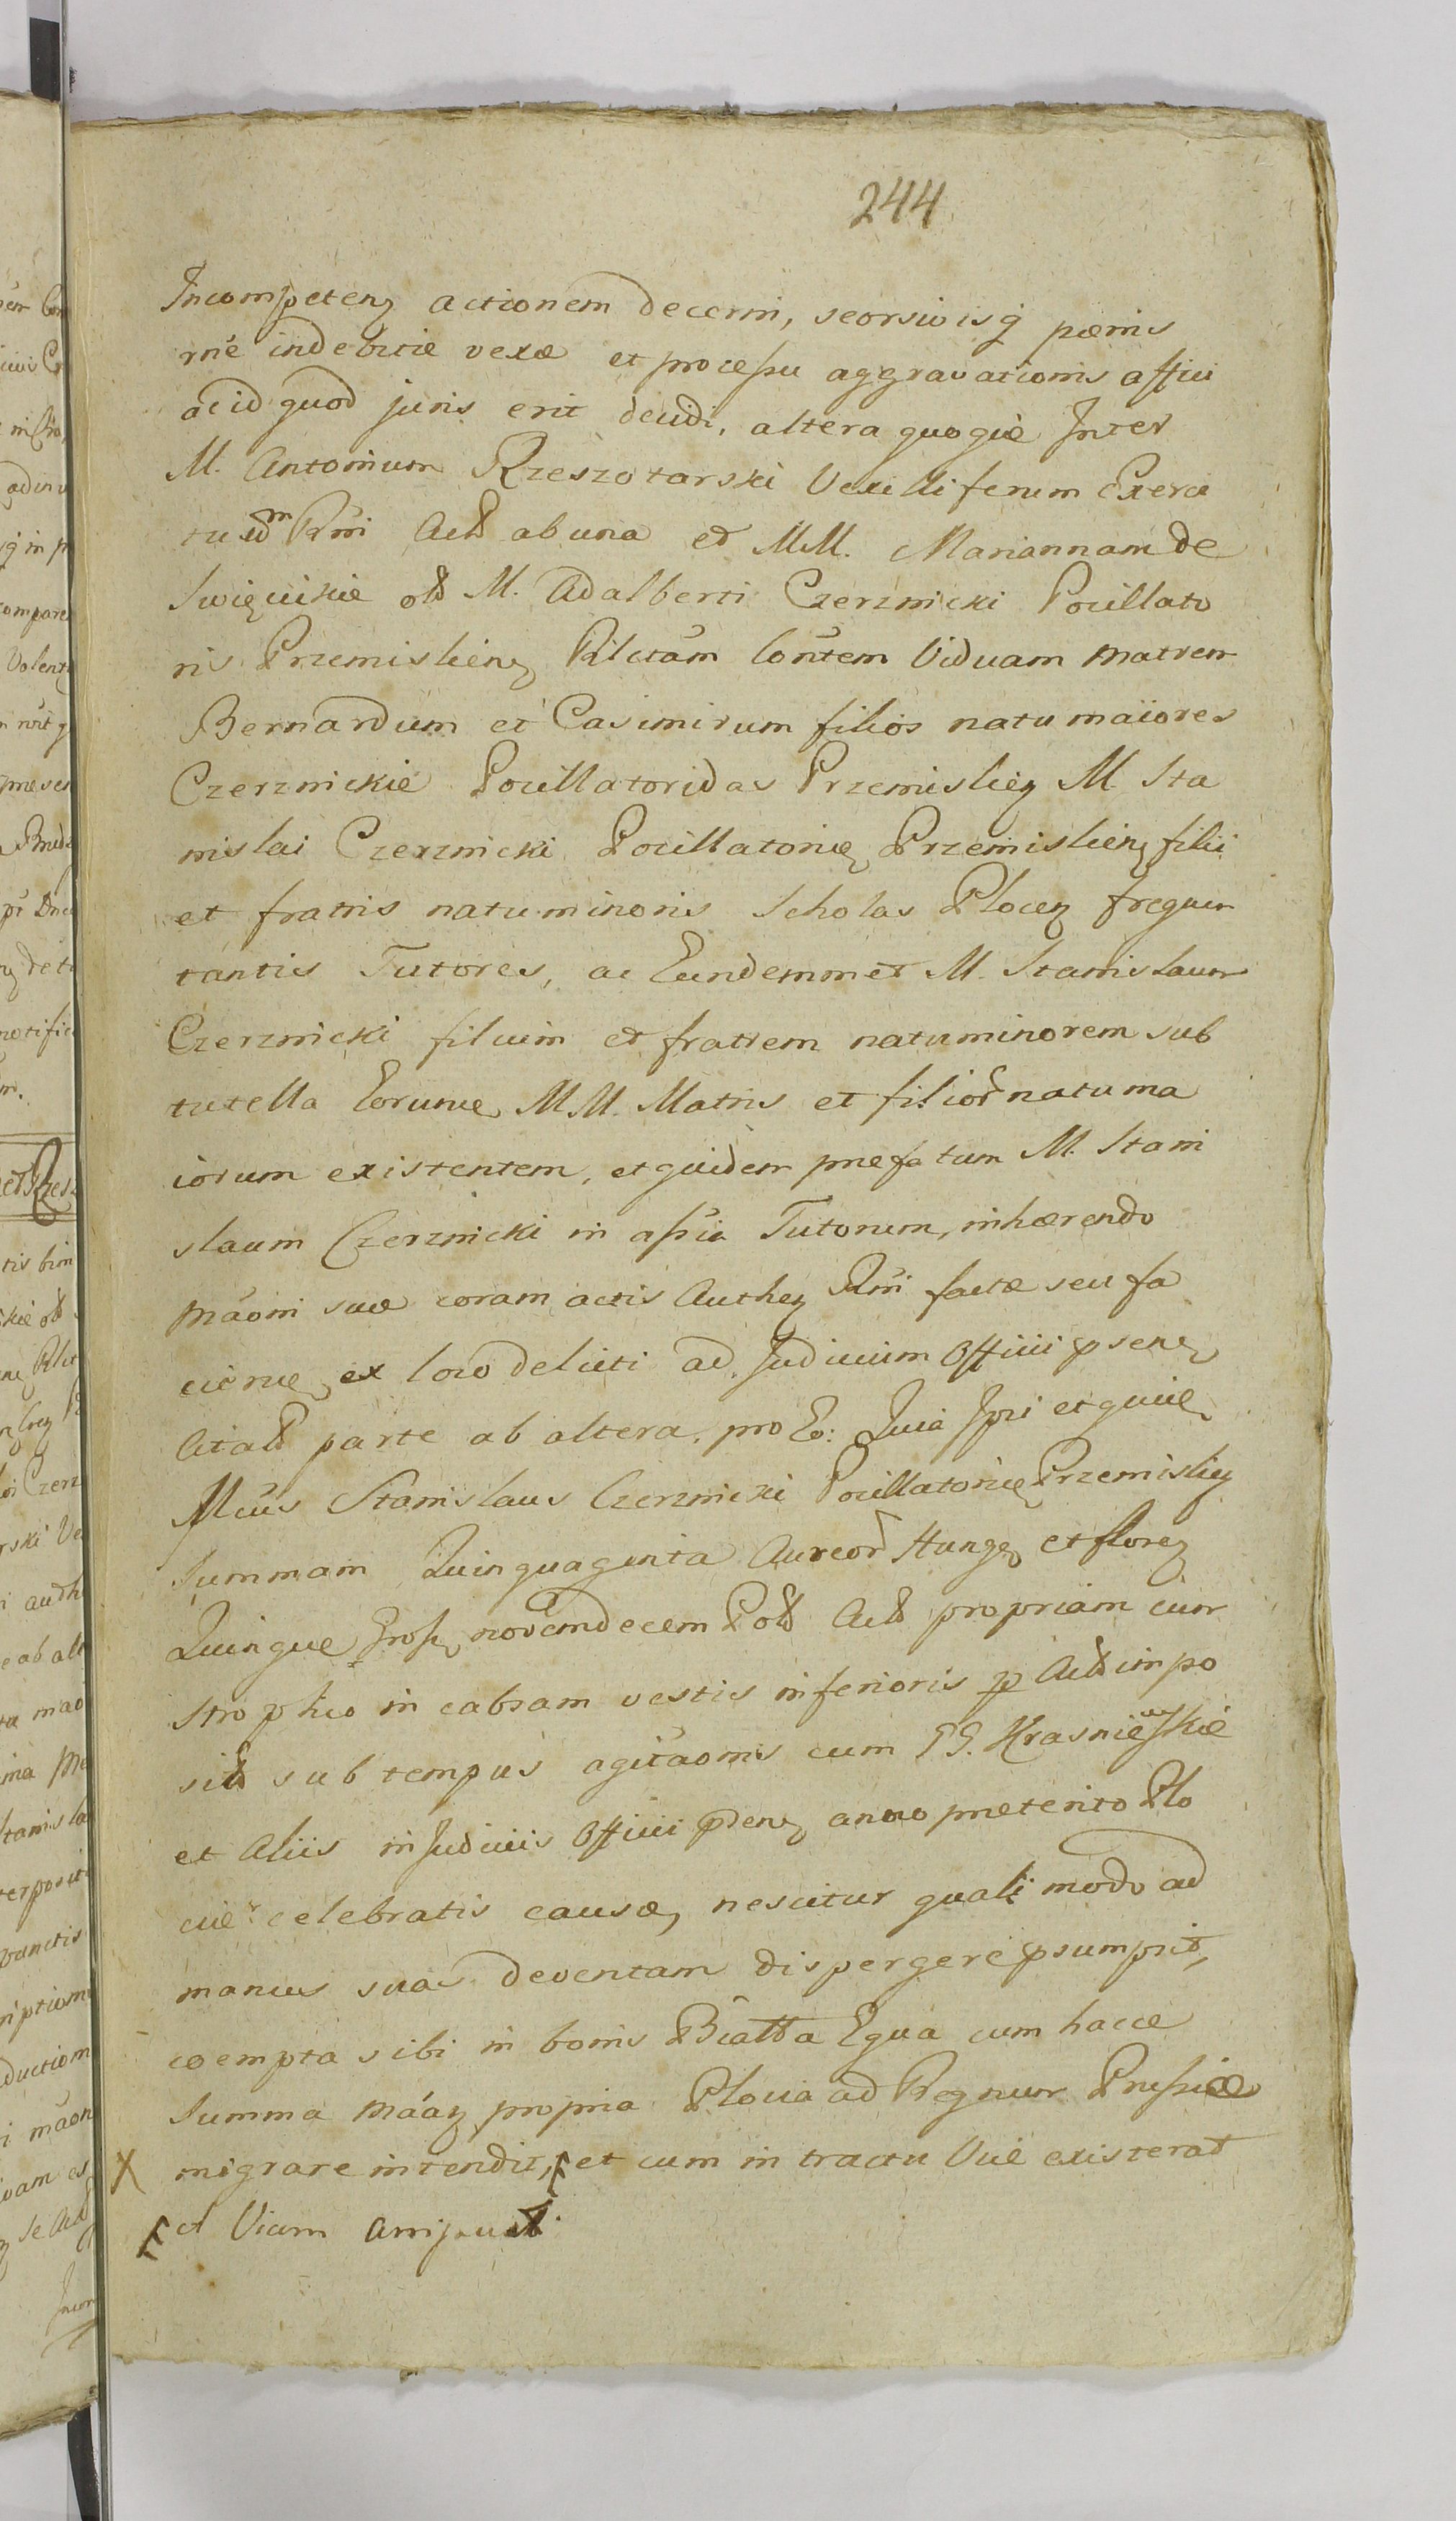 244
Incompeteng actionem decerni, seorsivisq pœnis
rne indebitæ vexæ et processu aggravationis affici
ac id quod juris erit decidi, altera quoque Inter
M. Antonium Rzeszotarski Vexilliferum Exerci
tuum Rni Actd ab una et MM. Mariannam de
Swięcickie old M. Adalberti Czerznicki Pocillato
ris Przemisliens Relctam Contem Viduam Matrem
Bernardum et Casimirum filios natu maiores
Czerznickie Pocillatoridas Przemislien M. Sta
nislai Czerznicki Pocillatoridę Przemisliens filii
et fratris natu minoris Scholas Plocen frequen
tantis Tutores, ac Eundemmet M. Stanislaum
Czerznicki filium et fratrem natu minorem sub
tutella Eorunde MM. Matris et filior natu ma
iorum existentem, et quidem præfatum M. Stani
slaum Czerznicki in assia Tutorum, inhærendo
Maoni suæ coram actis Authen Rni factæ seu fa
ciende, ex loco delicti ad Judicium Officii psens
Citatd parte ab altera, pro Eo: Quia Ipsi et quidem
Mcus Stanislaus Czerznicki Pocillatoridę Przemislien
Summam Quinquaginta Aureor Hung et floren
Quinque gross novemdecem Pold Actd propriam cum
Strophio in cabsam vestis inferioris p Actd impo
sitd sub tempus agitaonis cum GG. Krasniewskie
et Aliis in Judiciis Officii psens anno præterito Plo
ciæ celebratis causæ, nescitur quali modo ad
manus suas deventam dispergere psumpsit,
coempta sibi in bonis Białła Equa cum hacce
Summa Máaz propria Plocia ad Regnum Prussiæ
X migrare intendit, F et cum in tractu Viæ existerat
F et Viam arripuit.